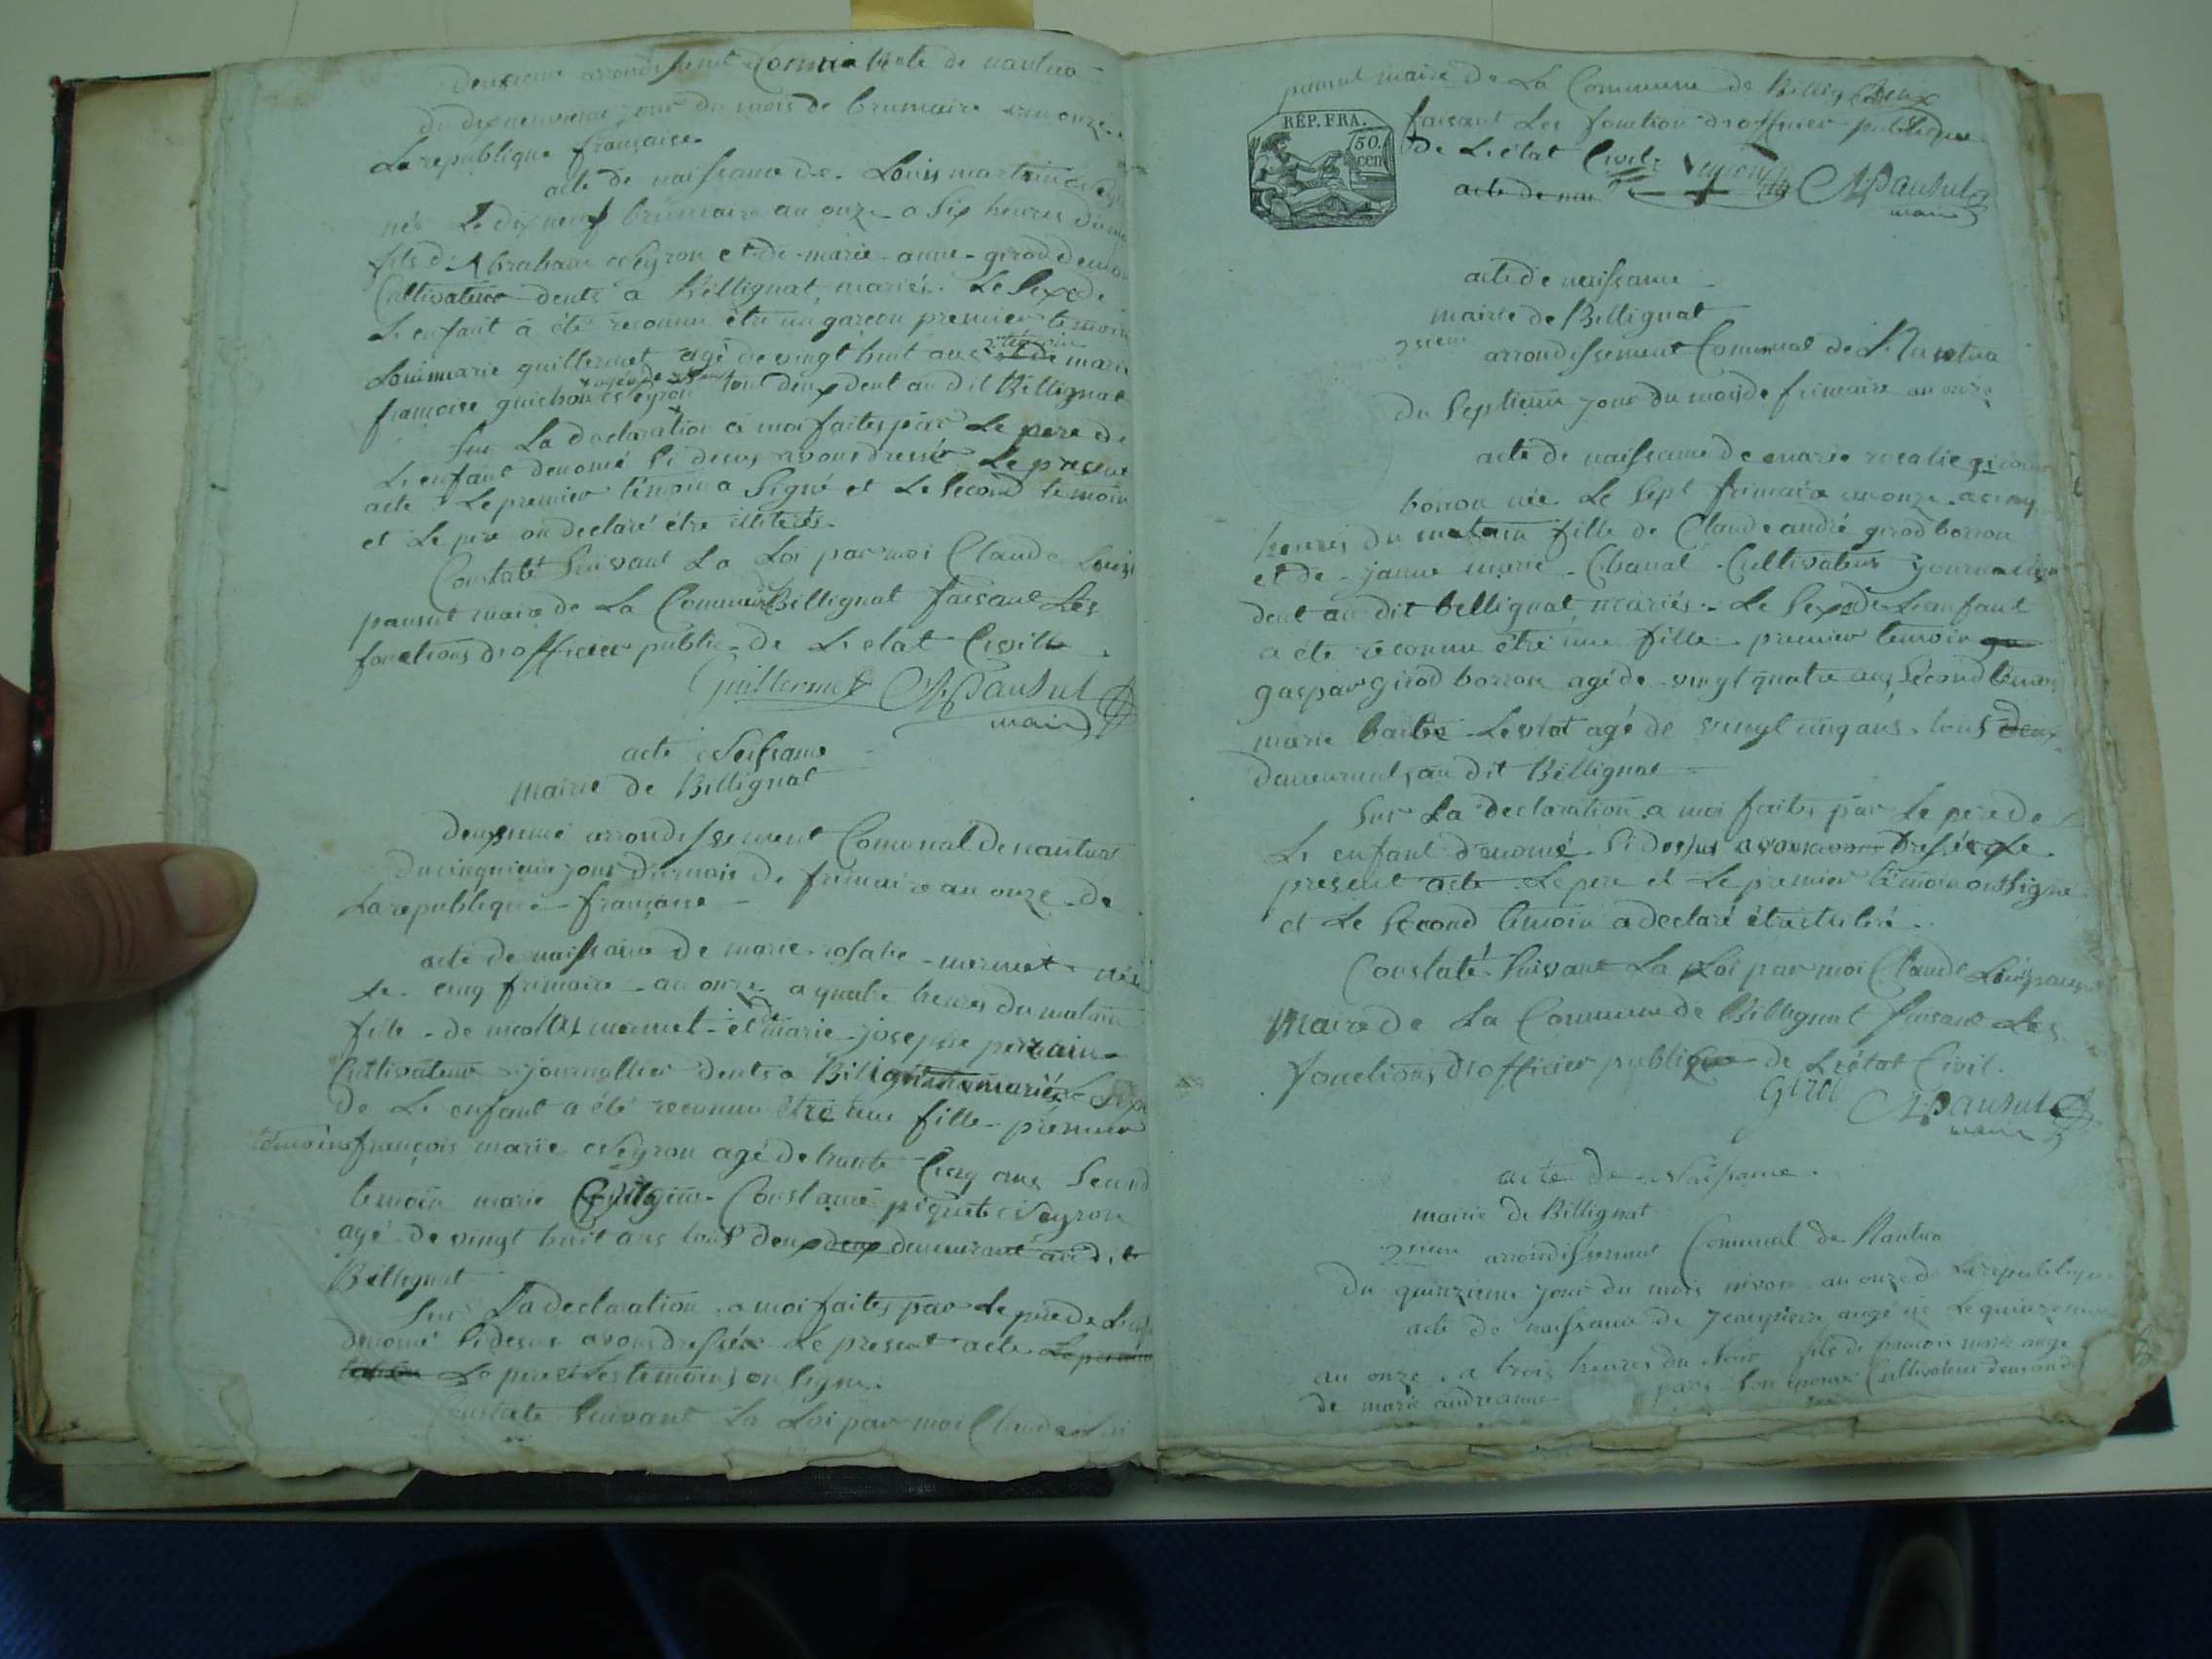 deuxieme arrondissement Communale de nantua
du dixneuvieme jour du mois de brumaire an onze
La republique française
acte de naissance de Louis martin
né Le dix neuf brumaire an onze a Six heures du
fils d'Abraham veyron et de marie anne girod
Cultivateur demts a Billignat mariés. Le Sexe de
L'enfant a été reconnu être un garcon premier temoin
Louis marie guillermet agé de vingt huit ans 2e temoin marie
françoise guichon veyron tous deux demt au dit Billignat
Sur La declaration a moi faites par Le pere de
L'enfant denomé Si desus avons dressé Le present
acte Le premier temoin a Signé et Le Second temoin
et Le pere on declaré être illiterés.
Constaté Suivant La Loi par moi Claude Louis
pansut maire de La Commune Billignat faisant Les
fonctions d'officier public de L'etat Civille
Guillermet Cl Pansut
maire
acte Neissance
Mairie de Billignat
deuxieme arrondissement Comunal de nantua
Du cinquieme jour du mois de frimaire an onze de
La republique française
acte de naissance de marie rosalie mermet née
Le cinq frimaire an onze a quatre heures du matain
fille de mermet et de marie josephe perrain
Cultivateur journallier demts a Billignat mariés Le Sexe
de L'enfant a été reconnu être une fille premier
temoins françois marie veyron agé de trante Cinq ans Second
temoin marie Constance piquet veyron
agé de vingt huit ans tous deux deux demeurant au dit
Billignat
Sur La declaration a moi faites par Le pere de L'enfant
denomé Si desus avons dressé Le present acte
Le pere et Les temoins on Signé.
Constate Suivant La Loi par moi Claude Louis
pansut maire de La Commune de Billignat
faisant Les fonction d'officier publique
de L'état Civil. Veyron Cl Pansut
acte de nai maire
REP. FRA.
50 cen
acte de naissance
mairie de Billignat
2sieme arrondissement Comunal de Nantua
Du Septieme jour du mois de frimaire an onze
acte de naissance de marie rosalie girod
borron née Le Sept frimaire an onze a cinq
heures du matain fille de Claude andré girod borron
et de janne marie Chanal Cultivateurs journaliers
demt au dit bellignat mariés. Le Sexe de L'enfant
a été reconnu être une fille premier temoin
gaspar girod borron agé de vingt quatre ans Second temoin
marie Levrat agé de vingt cinq ans tous deux
demeurant au dit Billignat
Sur La declaration a moi faites par Le pere de
L'enfant denomé Si dessus avons dressé Le
présent acte Le pere et Le premier temoin ont Signé
et Le Second temoin a declaré être
Constaté Suivant La Loi par moi Claude Louis pansut
Maire de La Commune de Billignat faisant Les
fonctions d'officier publique de L'état Civil.
Girod Cl Pansut
maire
acte de Naissance.
mairie de Billignat
2sieme arrondissement Comunal de Nantua
Du quinzieme jour du mois nivose an onze de La republique
acte de naissance de jean pierre augé né Le quinze
an onze a trois heures du Soir fils de francois marie augé
de marie andreanne Son epouse Cultivateur demeurant